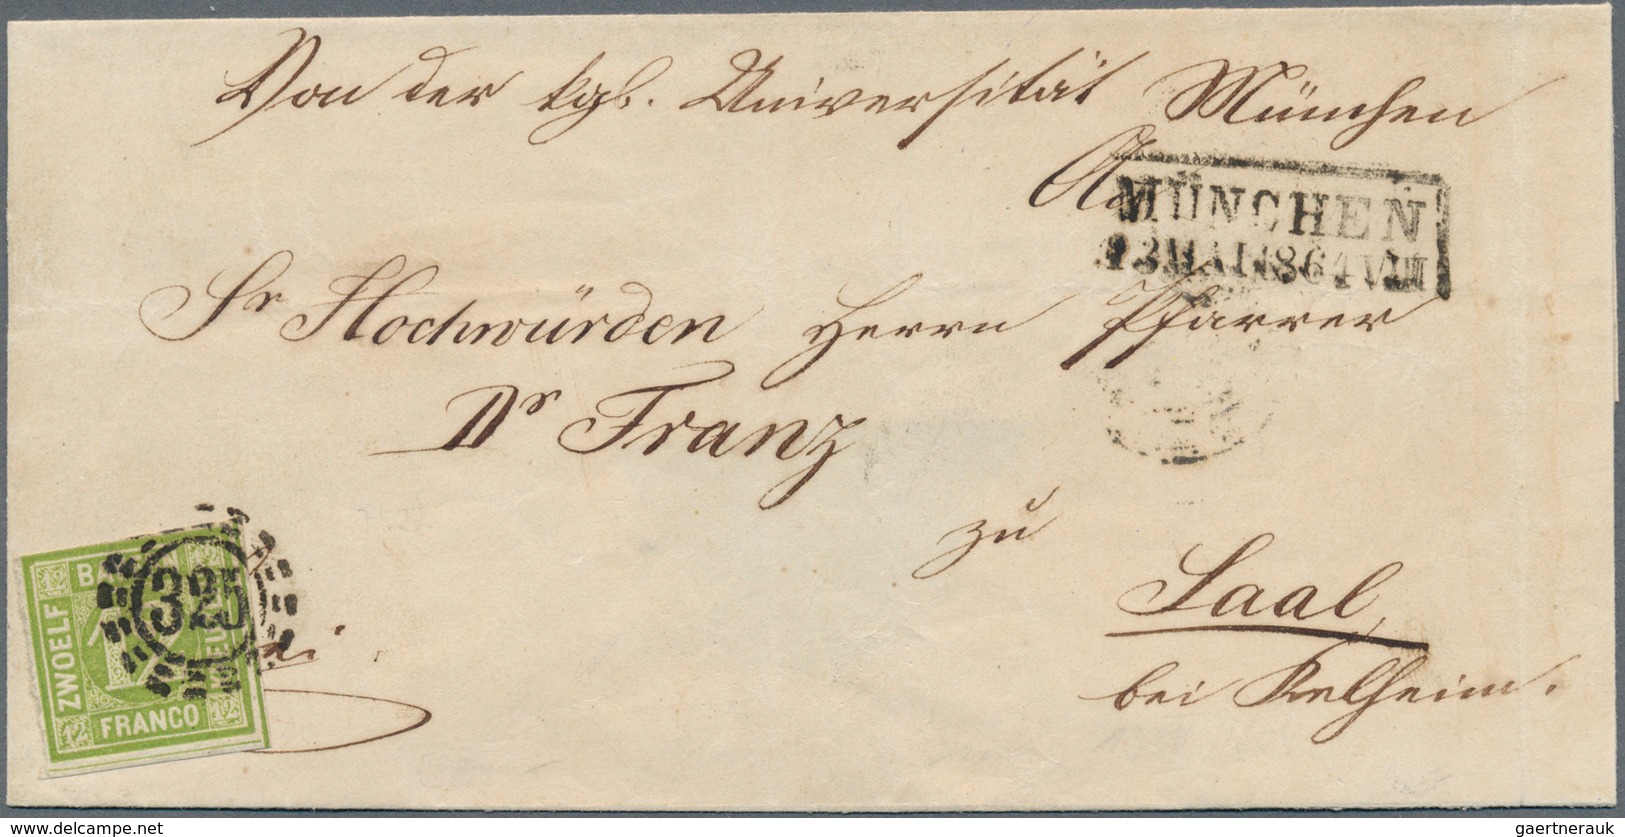 Von der kgl. Universität München
An
MÜNCHEN
13 MAI 1864 VIII
Sr Hochwürden Herrn Pfarrer
Dr Franz
zu
Saal
bei Kelheim.
12 12
325
ZWOELF
12 FRANCO 12
delcampe.net
gaertnerauk